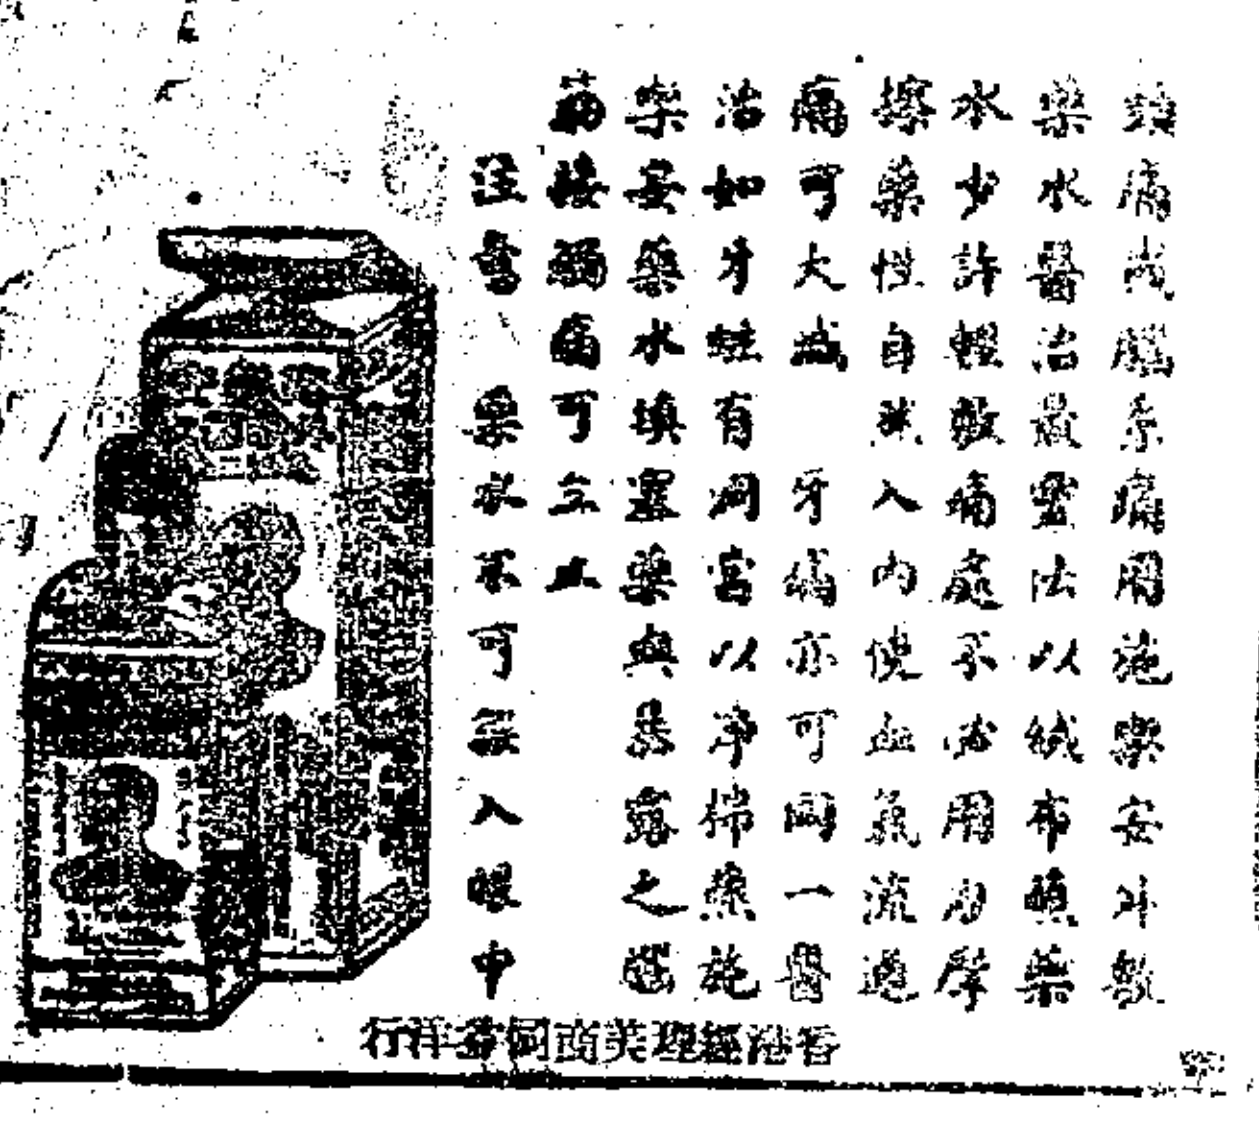 頭痛或腦系痛用施樂安外敷
藥水醫治最靈法以絨布蘸藥
水少許輕敷痛處不必用力摩
擦藥性自然入內使血氣流通
痛可大減
牙痛亦可同一醫
治如牙蛀有洞當以淨棉蘸施
樂安藥水填置藥與暴露之腦
筋接觸痛可立止
注意
藥水不可誤入眼中
香港經理美商同㳟洋行